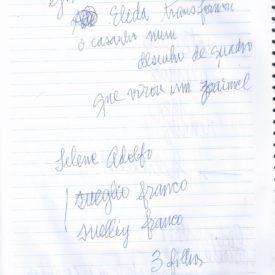 Elida transformou
o casarão num
desenho de quadro
que virou um painel
Selene Adolfo
franco
suelly franco
3 filhos